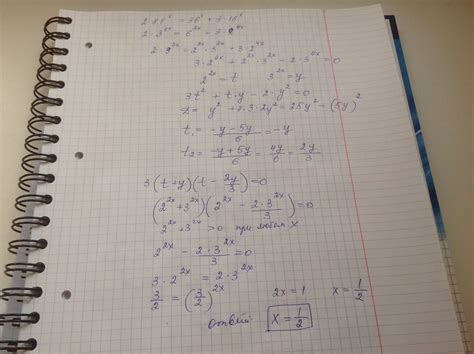 2·81ˣ = 36ˣ + 3·16ˣ
2·3⁴ˣ = 6²ˣ + 3·2⁴ˣ
2·3⁴ˣ = 2²ˣ·3²ˣ + 3·2⁴ˣ
3·2⁴ˣ + 2²ˣ·3²ˣ - 2·3⁴ˣ = 0
2²ˣ = t 3²ˣ = y
3t² + t·y - 2·y² = 0
D = y² + 4·3·2y² = 25y² = (5y)²
t₁ = (-y-5y)/6 = -y
t₂ = (-y+5y)/6 = 4y/6 = 2y/3
3(t+y)(t - 2y/3) = 0
(2²ˣ + 3²ˣ)(2²ˣ - 2·3²ˣ/3) = 0
2²ˣ + 3²ˣ > 0 при любом x
2²ˣ - 2·3²ˣ/3 = 0
3·2²ˣ = 2·3²ˣ
3/2 = (3/2)²ˣ 2x = 1 x = 1/2
ответ: x = 1/2